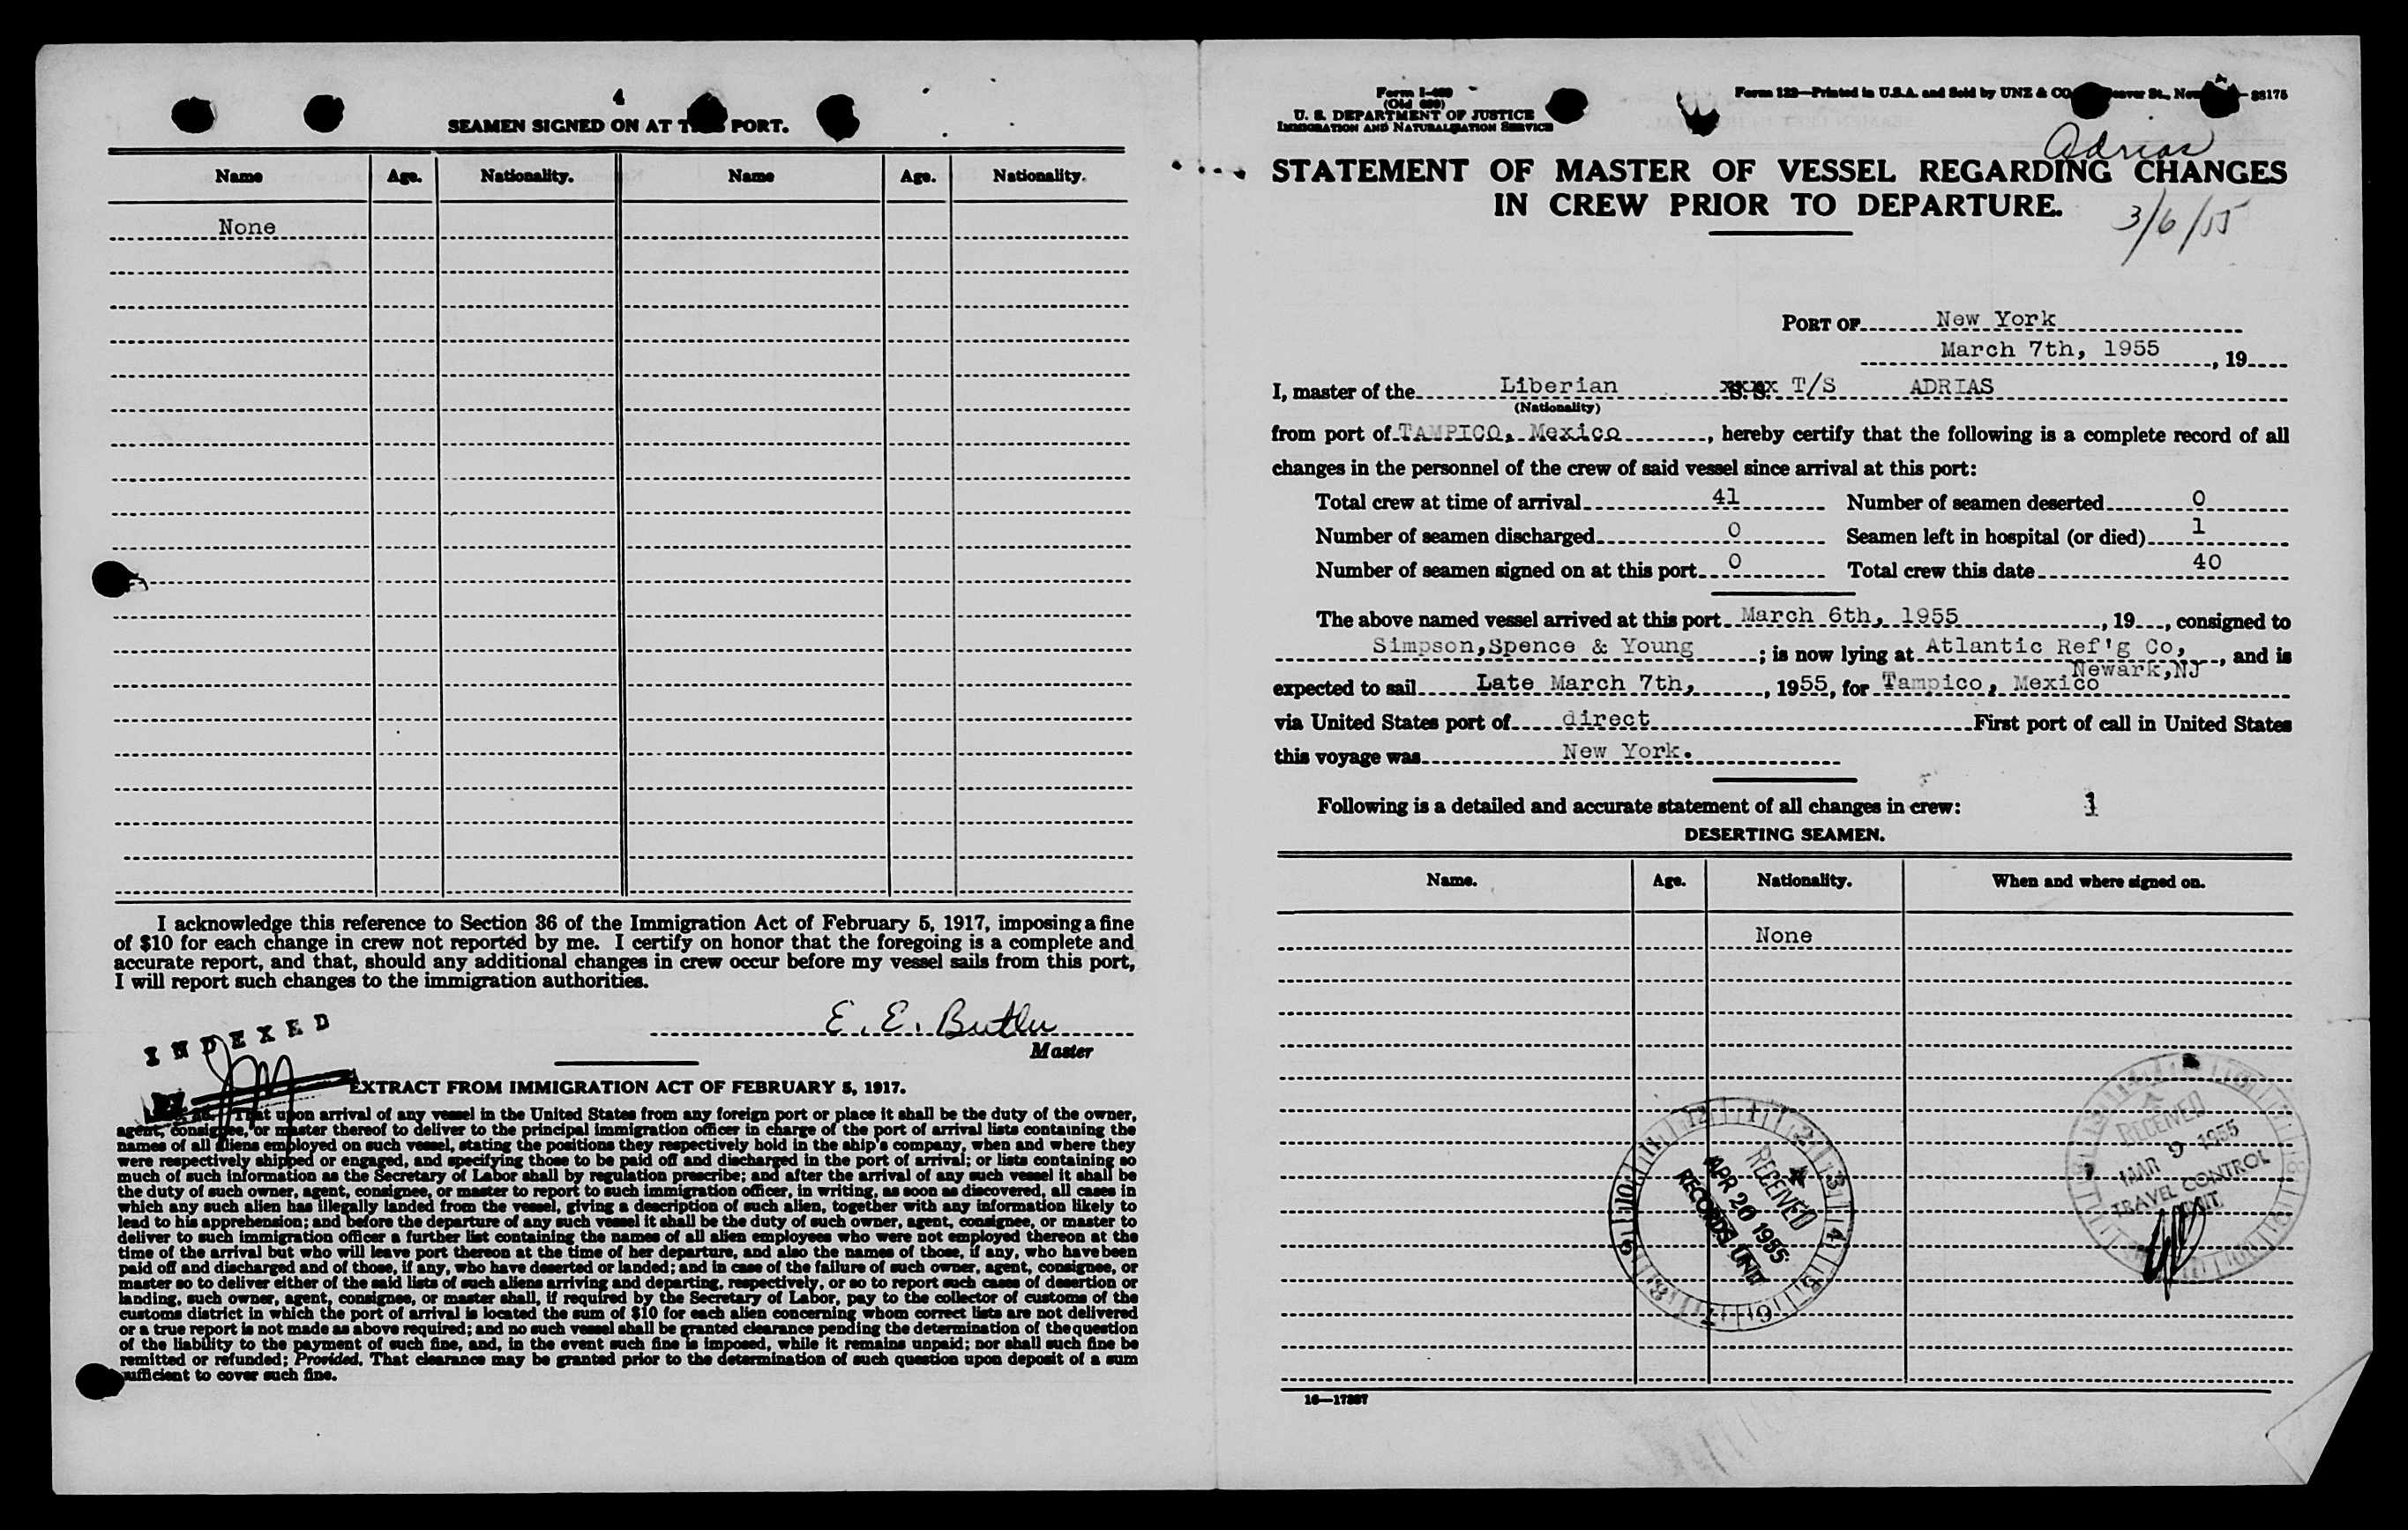 4
SEAMEN SIGNED ON AT THIS PORT.
Name Age. Nationality. Name Age. Nationality.
None
I acknowledge this reference to Section 36 of the Immigration Act of February 5, 1917, imposing a fine
of $10 for each change in crew not reported by me. I certify on honor that the foregoing is a complete and
accurate report, and that, should any additional changes in crew occur before my vessel sails from this port,
I will report such changes to the immigration authorities.
E. E. Butler
Master
INDEXED
EXTRACT FROM IMMIGRATION ACT OF FEBRUARY 5, 1917.
That upon arrival of any vessel in the United States from any foreign port or place it shall be the duty of the owner,
agent, consignee, or master thereof to deliver to the principal immigration officer in charge of the port of arrival lists containing the
names of all aliens employed on such vessel, stating the positions they respectively hold in the ship's company, when and where they
were respectively shipped or engaged, and specifying those to be paid off and discharged in the port of arrival; or lists containing so
much of such information as the Secretary of Labor shall by regulation prescribe; and after the arrival of any such vessel it shall be
the duty of such owner, agent, consignee, or master to report to such immigration officer, in writing, as soon as discovered, all cases in
which any such alien has illegally landed from the vessel, giving a description of such alien, together with any information likely to
lead to his apprehension; and before the departure of any such vessel it shall be the duty of such owner, agent, consignee, or master to
deliver to such immigration officer a further list containing the names of all alien employees who were not employed thereon at the
time of the arrival but who will leave port thereon at the time of her departure, and also the names of those, if any, who have been
paid off and discharged and of those, if any, who have deserted or landed; and in case of the failure of such owner, agent, consignee, or
master so to deliver either of the said lists of such aliens arriving and departing, respectively, or so to report such cases of desertion or
landing, such owner, agent, consignee, or master shall, if required by the Secretary of Labor, pay to the collector of customs of the
customs district in which the port of arrival is located the sum of $10 for each alien concerning whom correct lists are not delivered
or a true report is not made as above required; and no such vessel shall be granted clearance pending the determination of the question
of the liability to the payment of such fine, and, in the event such fine is imposed, while it remains unpaid; nor shall such fine be
remitted or refunded; Provided, That clearance may be granted prior to the determination of such question upon deposit of a sum
sufficient to cover such fine.
Form I-489
(Old 689)
U. S. DEPARTMENT OF JUSTICE
IMMIGRATION AND NATURALIZATION SERVICE
Form 122—Printed in U.S.A. and Sold by UNZ & CO. Beaver St., New 38175
Adrias
STATEMENT OF MASTER OF VESSEL REGARDING CHANGES
IN CREW PRIOR TO DEPARTURE.
3/6/55
PORT OF New York
March 7th, 1955, 19
I, master of the Liberian S.S. T/S ADRIAS
(Nationality)
from port of TAMPICO, Mexico, hereby certify that the following is a complete record of all
changes in the personnel of the crew of said vessel since arrival at this port:
Total crew at time of arrival 41 Number of seamen deserted 0
Number of seamen discharged 0 Seamen left in hospital (or died) 1
Number of seamen signed on at this port 0 Total crew this date 40
The above named vessel arrived at this port March 6th, 1955, 19, consigned to
Simpson,Spence & Young; is now lying at Atlantic Ref'g Co, Newark,NJ, and is
expected to sail Late March 7th,, 1955, for Tampico, Mexico
via United States port of direct First port of call in United States
this voyage was New York.
Following is a detailed and accurate statement of all changes in crew: 1
DESERTING SEAMEN.
Name. Age. Nationality. When and where signed on.
None
RECEIVED
APR 20 1955
RECORDS UNIT
RECEIVED
MAR 9 1955
TRAVEL CONTROL
UNIT.
16—17287